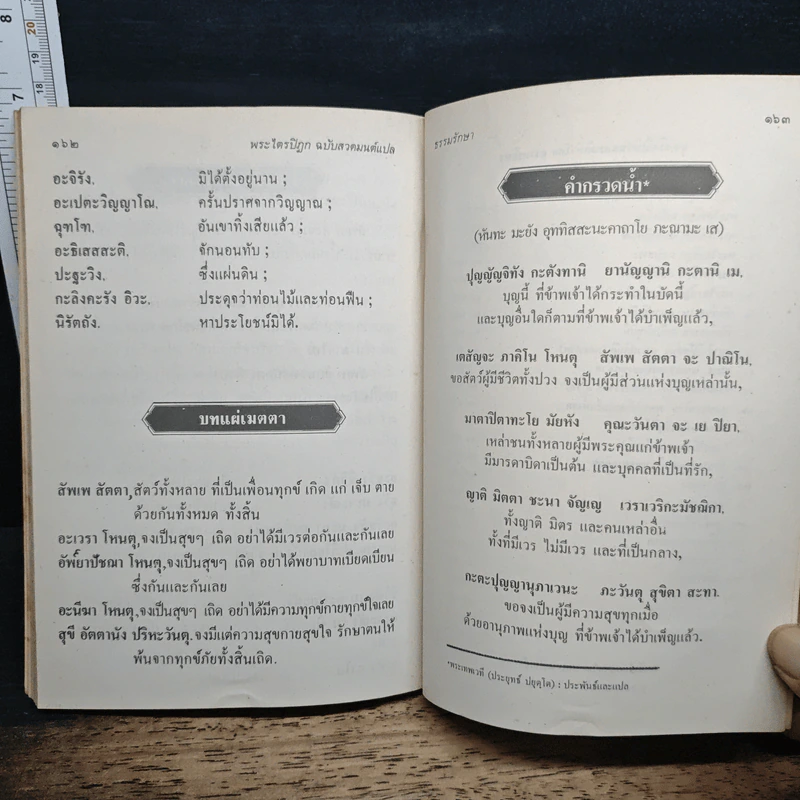 8
7
20
19
18
17
๑๖๒
พระไตรปิฎก ฉบับสวดมนต์แปล
อะจิรัง. มิได้ตั้งอยู่นาน ;
อะเปตะวิญญาโณ. ครั้นปราศจากวิญญาณ ;
ฉุฑโฑ. อันเขาทิ้งเสียแล้ว ;
อะธิเสสสะติ. จักนอนทับ ;
ปะฐะวิง. ซึ่งแผ่นดิน ;
กะลิงคะรัง อิวะ. ประดุจว่าท่อนไม้และท่อนฟืน ;
นิรัตถัง. หาประโยชน์มิได้.
บทแผ่เมตตา
สัพเพ สัตตา, สัตว์ทั้งหลาย ที่เป็นเพื่อนทุกข์ เกิด แก่ เจ็บ ตาย
ด้วยกันทั้งหมด ทั้งสิ้น
อะเวรา โหนตุ, จงเป็นสุขๆ เถิด อย่าได้มีเวรต่อกันและกันเลย
อัพ๎ยาปัชฌา โหนตุ, จงเป็นสุขๆ เถิด อย่าได้พยาบาทเบียดเบียน
ซึ่งกันและกันเลย
อะนีฆา โหนตุ, จงเป็นสุขๆ เถิด อย่าได้มีความทุกข์กายทุกข์ใจเลย
สุขี อัตตานัง ปริหะวันตุ. จงมีแต่ความสุขกายสุขใจ รักษาตนให้
พ้นจากทุกข์ภัยทั้งสิ้นเถิด.
ธรรมรักษา
๑๖๓
คำกรวดน้ำ*
(หันทะ มะยัง อุททิสสะนะคาถาโย ภะณามะ เส)
ปุญญัญจิทัง กะตังทานิ ยานัญญานิ กะตานิ เม.
บุญนี้ ที่ข้าพเจ้าได้กระทำในบัดนี้
และบุญอื่นใดก็ตามที่ข้าพเจ้าได้บำเพ็ญแล้ว,
เตสัญจะ ภาคิโน โหนตุ สัพเพ สัตตา จะ ปาณิโน.
ขอสัตว์ผู้มีชีวิตทั้งปวง จงเป็นผู้มีส่วนแห่งบุญเหล่านั้น,
มาตาปิตาทะโย มัยหัง คุณะวันตา จะ เย ปิยา.
เหล่าชนทั้งหลายผู้มีพระคุณแก่ข้าพเจ้า
มีมารดาบิดาเป็นต้น และบุคคลที่เป็นที่รัก,
ญาติ มิตตา ชะนา จัญเญ เวราเวริกะมัชฌิกา.
ทั้งญาติ มิตร และคนเหล่าอื่น
ทั้งที่มีเวร ไม่มีเวร และที่เป็นกลาง,
กะตะปุญญานุภาเวนะ ภะวันตุ สุขิตา สะทา.
ขอจงเป็นผู้มีความสุขทุกเมื่อ
ด้วยอานุภาพแห่งบุญ ที่ข้าพเจ้าได้บำเพ็ญแล้ว.
*พระเทพเวที (ประยุทธ์ ปยุตฺโต) : ประพันธ์และแปล